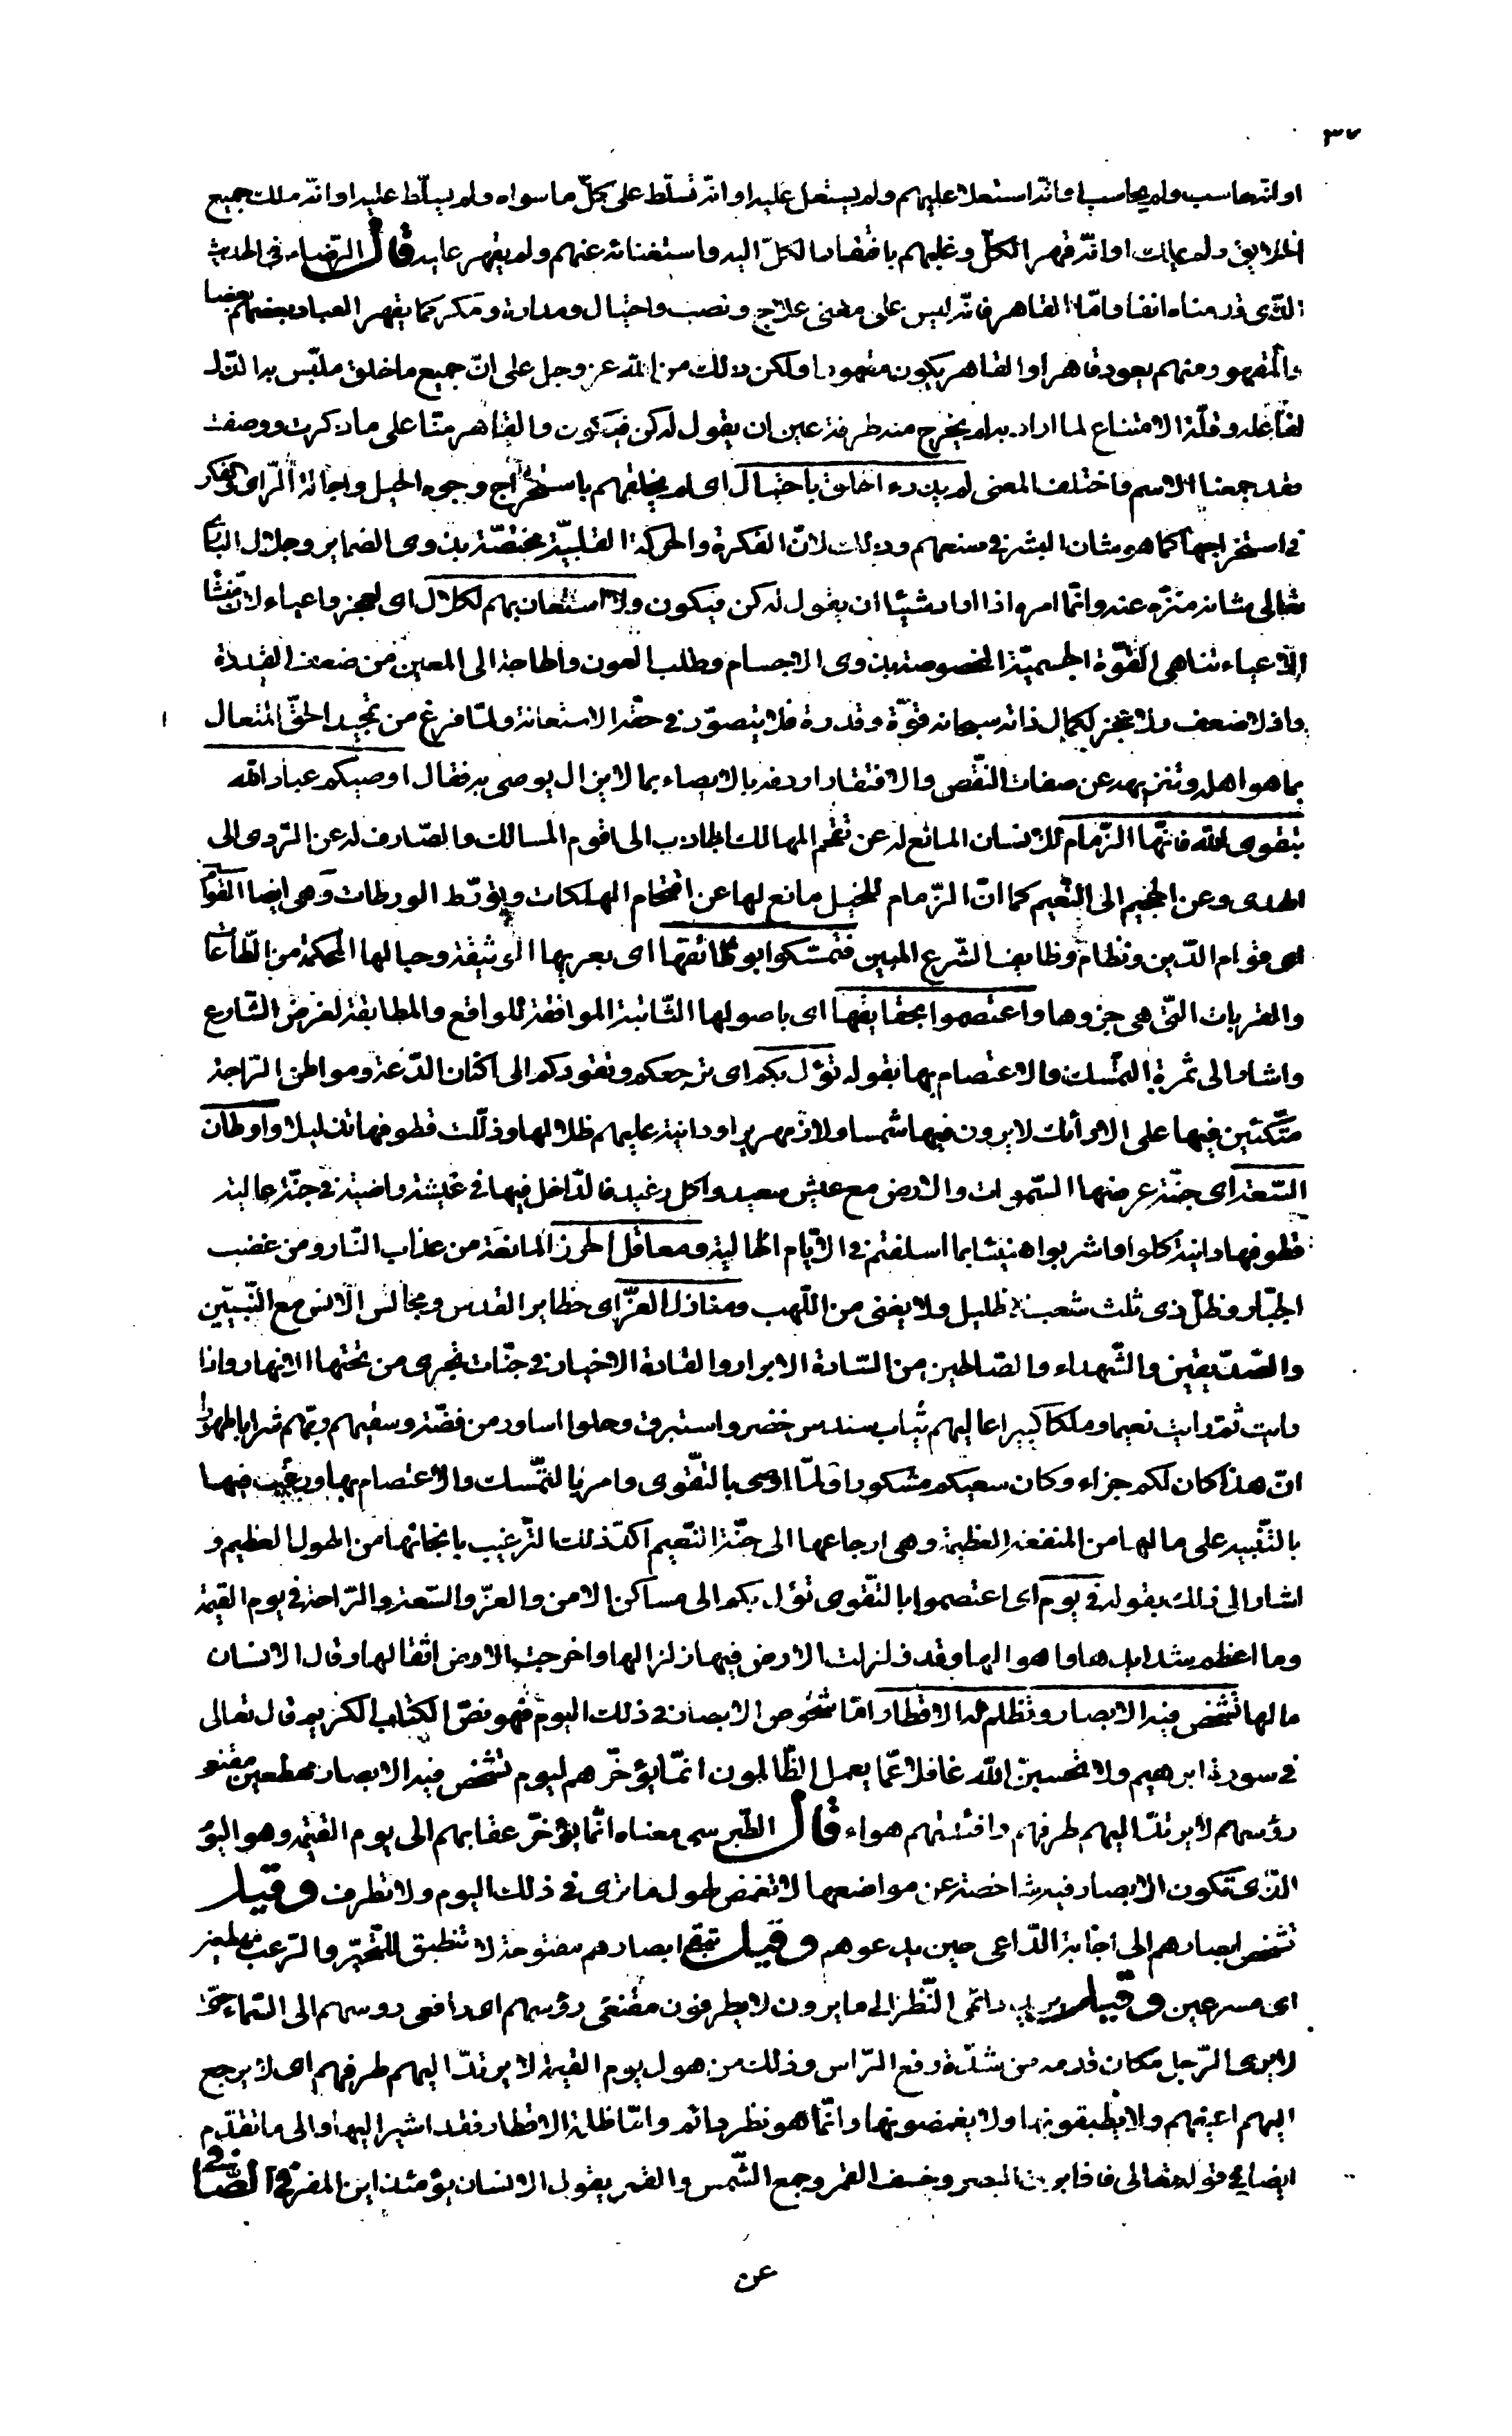 ٣٧
او انّه حاسب ولم يحاسب او انّه استعلا عليهم ولم يستعل عليه او انّه تسلّط على كلّ ما سواه ولم يسلّط عليه او انّه ملك جميع
الخلايق ولم يملك او انّه قهر الكلّ وغلبهم بافتقار الكلّ اليه واستغنائه عنهم ولم يقهر عليه قال الرّضاء في الحديث
الّذى قدمناه انفا وامّا القاهر فانّه ليس على معنى علاج ونصب واحتيال ومداراة ومكر كما يقهر العباد بعضهم بعضا
والمقهور منهم يعود قاهرا والقاهر يكون مقهورا ولكن ذلك من الله عز وجل على انّ جميع ما خلق ملبّس به الذّل
لفاعله وقلّة الامتناع لما اراد به لم يخرج منه طرفة عين ان يقول له كن فيكون والقاهر منّا على ما ذكرت ووصفت
فقد جمعنا الاسم واختلف المعنى لم يذرء الخلق باحتيال اى لم يخلقهم باستخراج وجوه الحيل واجالة الرّاى والفكر
في استخراجها كما هو شان البشر في صنعهم وذلك لانّ الفكرة والحركة القلبيّة مختصّة بذوى الضماير وجلال البارى
تعالى شانه منزّه عنه وانّما امره اذا اراد شيئا ان يقول له كن فيكون ولا استعان بهم لكلال اى لعجز واعياء لانّ منشا
الاعياء تناهى القوّة الجسميّة المخصوصة بذوى الاجسام وطلب العون والحاجة الى المعين من ضعف القدرة
واذ لا ضعف ولا عجز لكمال ذاته سبحانه قوّة وقدرة فلا يتصوّر في حقّه الاستعانة ولمّا فرغ من تمجيد الحقّ المتعال
بما هو اهله وتنزيهه عن صفات النّقص والافتقار اردفه بالايصاء بما لا يزال يوصى به فقال اوصيكم عباد الله
بتقوى الله فانّها الزّمام للانسان المانع له عن تقحّم المهالك الجاذب الى اقوم المسالك والصّارف له عن الرّدى الى
الهدى وعن الجحيم الى النّعيم كما انّ الزّمام للخيل مانع لها عن اقتحام الهلكات وتورّط الورطات وهى ايضا القوام
اى قوام الدّين ونظام وظايف الشّرع المبين فتمسّكوا بوثائقها اى بعريها الوثيقة وحبالها المحكمة من الطّاعات
والقربات الّتى هى جزوها واعتصموا بحقايقها اى باصولها الثّابتة الموافقة للواقع والمطابقة لغرض الشّارع
واشار الى ثمرة التمسّك والاعتصام بها بقوله تؤل بكم اى ترجعكم وتقودكم الى اكنان الدّعة ومواطن الرّاحة
متّكئين فيها على الارائك لا يرون فيها شمسا ولا زمهريرا ودانية عليهم ظلالها وذلّلت قطوفها تذليلا واوطان
السّعة اى جنّة عرضها السّموات والارض مع عيش سعيد واكل رغيد فالدّاخل فيها في عيشة راضية في جنّة عالية
قطوفها دانية كلوا واشربوا هنيئا بما اسلفتم في الايّام الخالية ومعاقل الحرز المانعة من عذاب النّار ومن غضب
الجبّار وظلّ ذى ثلث شعب لا ظليل ولا يغنى من اللّهب ومنازل العزّ اى حظاير القدس ومجالس الانس مع النّبيّين
والصّدّيقين والشّهداء والصّالحين من السّادة الابرار والقادة الاخيار في جنّات تجرى من تحتها الانهار واذا
رايت ثمّ رايت نعيما وملكا كبيرا عاليهم ثياب سندس خضر واستبرق وحلوا اساور من فضّة وسقيهم ربّهم شرابا طهورا
انّ هذا كان لكم جزاء وكان سعيكم مشكورا ولمّا اوصى بالتّقوى وامر بالتمسّك والاعتصام بها ورغّب فيها
بالتّنبيه على مالها من المنفعة العظيمة وهى ارجاعها الى جنّة النّعيم اكّد ذلك التّرغيب بانجائها من الهول العظيم و
اشار الى ذلك بقوله في يوم اى اعتصموا بالتّقوى تؤل بكم الى مساكن الامن والعزّ والسّعة والرّاحة في يوم القيمة
وما اعظم شدايدها واهوالها وقد زلزلت الارض فيها زلزالها واخرجت الارض اثقالها وقال الانسان
مالها تشخص فيه الابصار وتظلم له الاقطار امّا شخوص الابصار في ذلك اليوم فهو نصّ الكتاب الكريم قال تعالى
في سورة ابرهيم ولا تحسبنّ الله غافلا عمّا يعمل الظّالمون انّما يؤخّرهم ليوم تشخص فيه الابصار مهطعين مقنعى
رؤسهم لا يرتدّ اليهم طرفهم وافئدتهم هواء قال الطّبرسى معناه انّما يؤخّر عقابهم الى يوم القيمة وهو اليوم
الّذى تكون الابصار فيه شاخصة عن مواضعها لا تغمض لهول ما ترى في ذلك اليوم ولا تطرف وقيل
تشخص ابصارهم الى اجابة الدّاعى حين يدعوهم وقيل تبقى ابصارهم مفتوحة لا تنطبق للتّحيّر والرّعب مهطعين
اى مسرعين وقيل يريد دائمى النّظر الى ما يرون لا يطرفون مقنعى رؤسهم اى رافعى روسهم الى السّماء حتّى
لا يرى الرّجل مكان قدمه من شدّة رفع الرّاس وذلك من هول يوم القيمة لا يرتدّ اليهم طرفهم اى لا يرجع
اليهم اعينهم ولا يطبقونها ولا يغمضونها وانّما هو نظر دائم وامّا ظلمة الاقطار فقد اشير اليها والى ما تقدّم
ايضا في قوله تعالى فاذا برق البصر وخسف القمر وجمع الشّمس والقمر يقول الانسان يومئذ اين المفر في الصّافى
عن